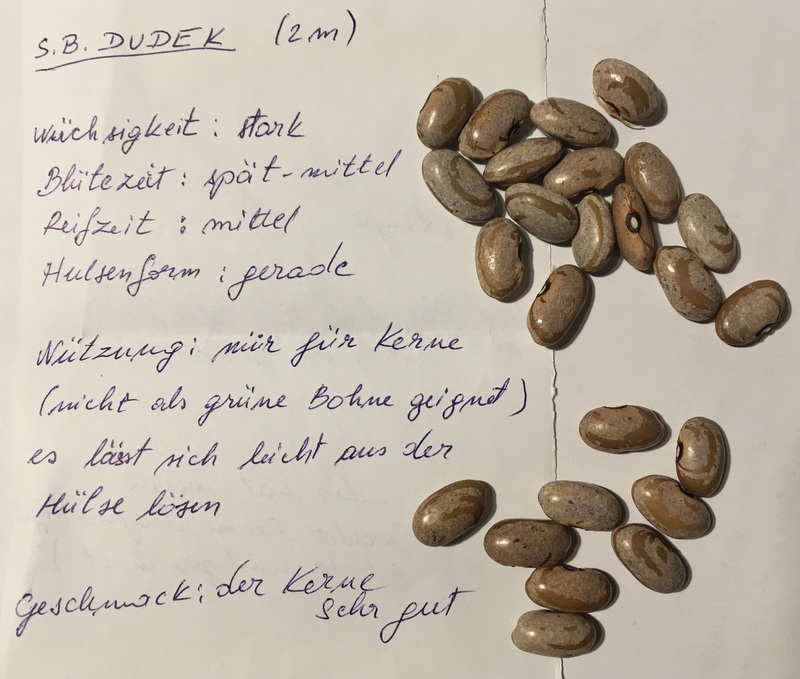 S.B. DUDEK (2 m)
Wüchsigkeit : stark
Blütezeit : spät-mittel
Reifzeit : mittel
Hülsenform : gerade
Nützung : nür für Kerne
(nicht als grüne Bohne geignet)
es lässt sich leicht aus der
Hülse lösen
Geschmack : der Kerne
sehr gut